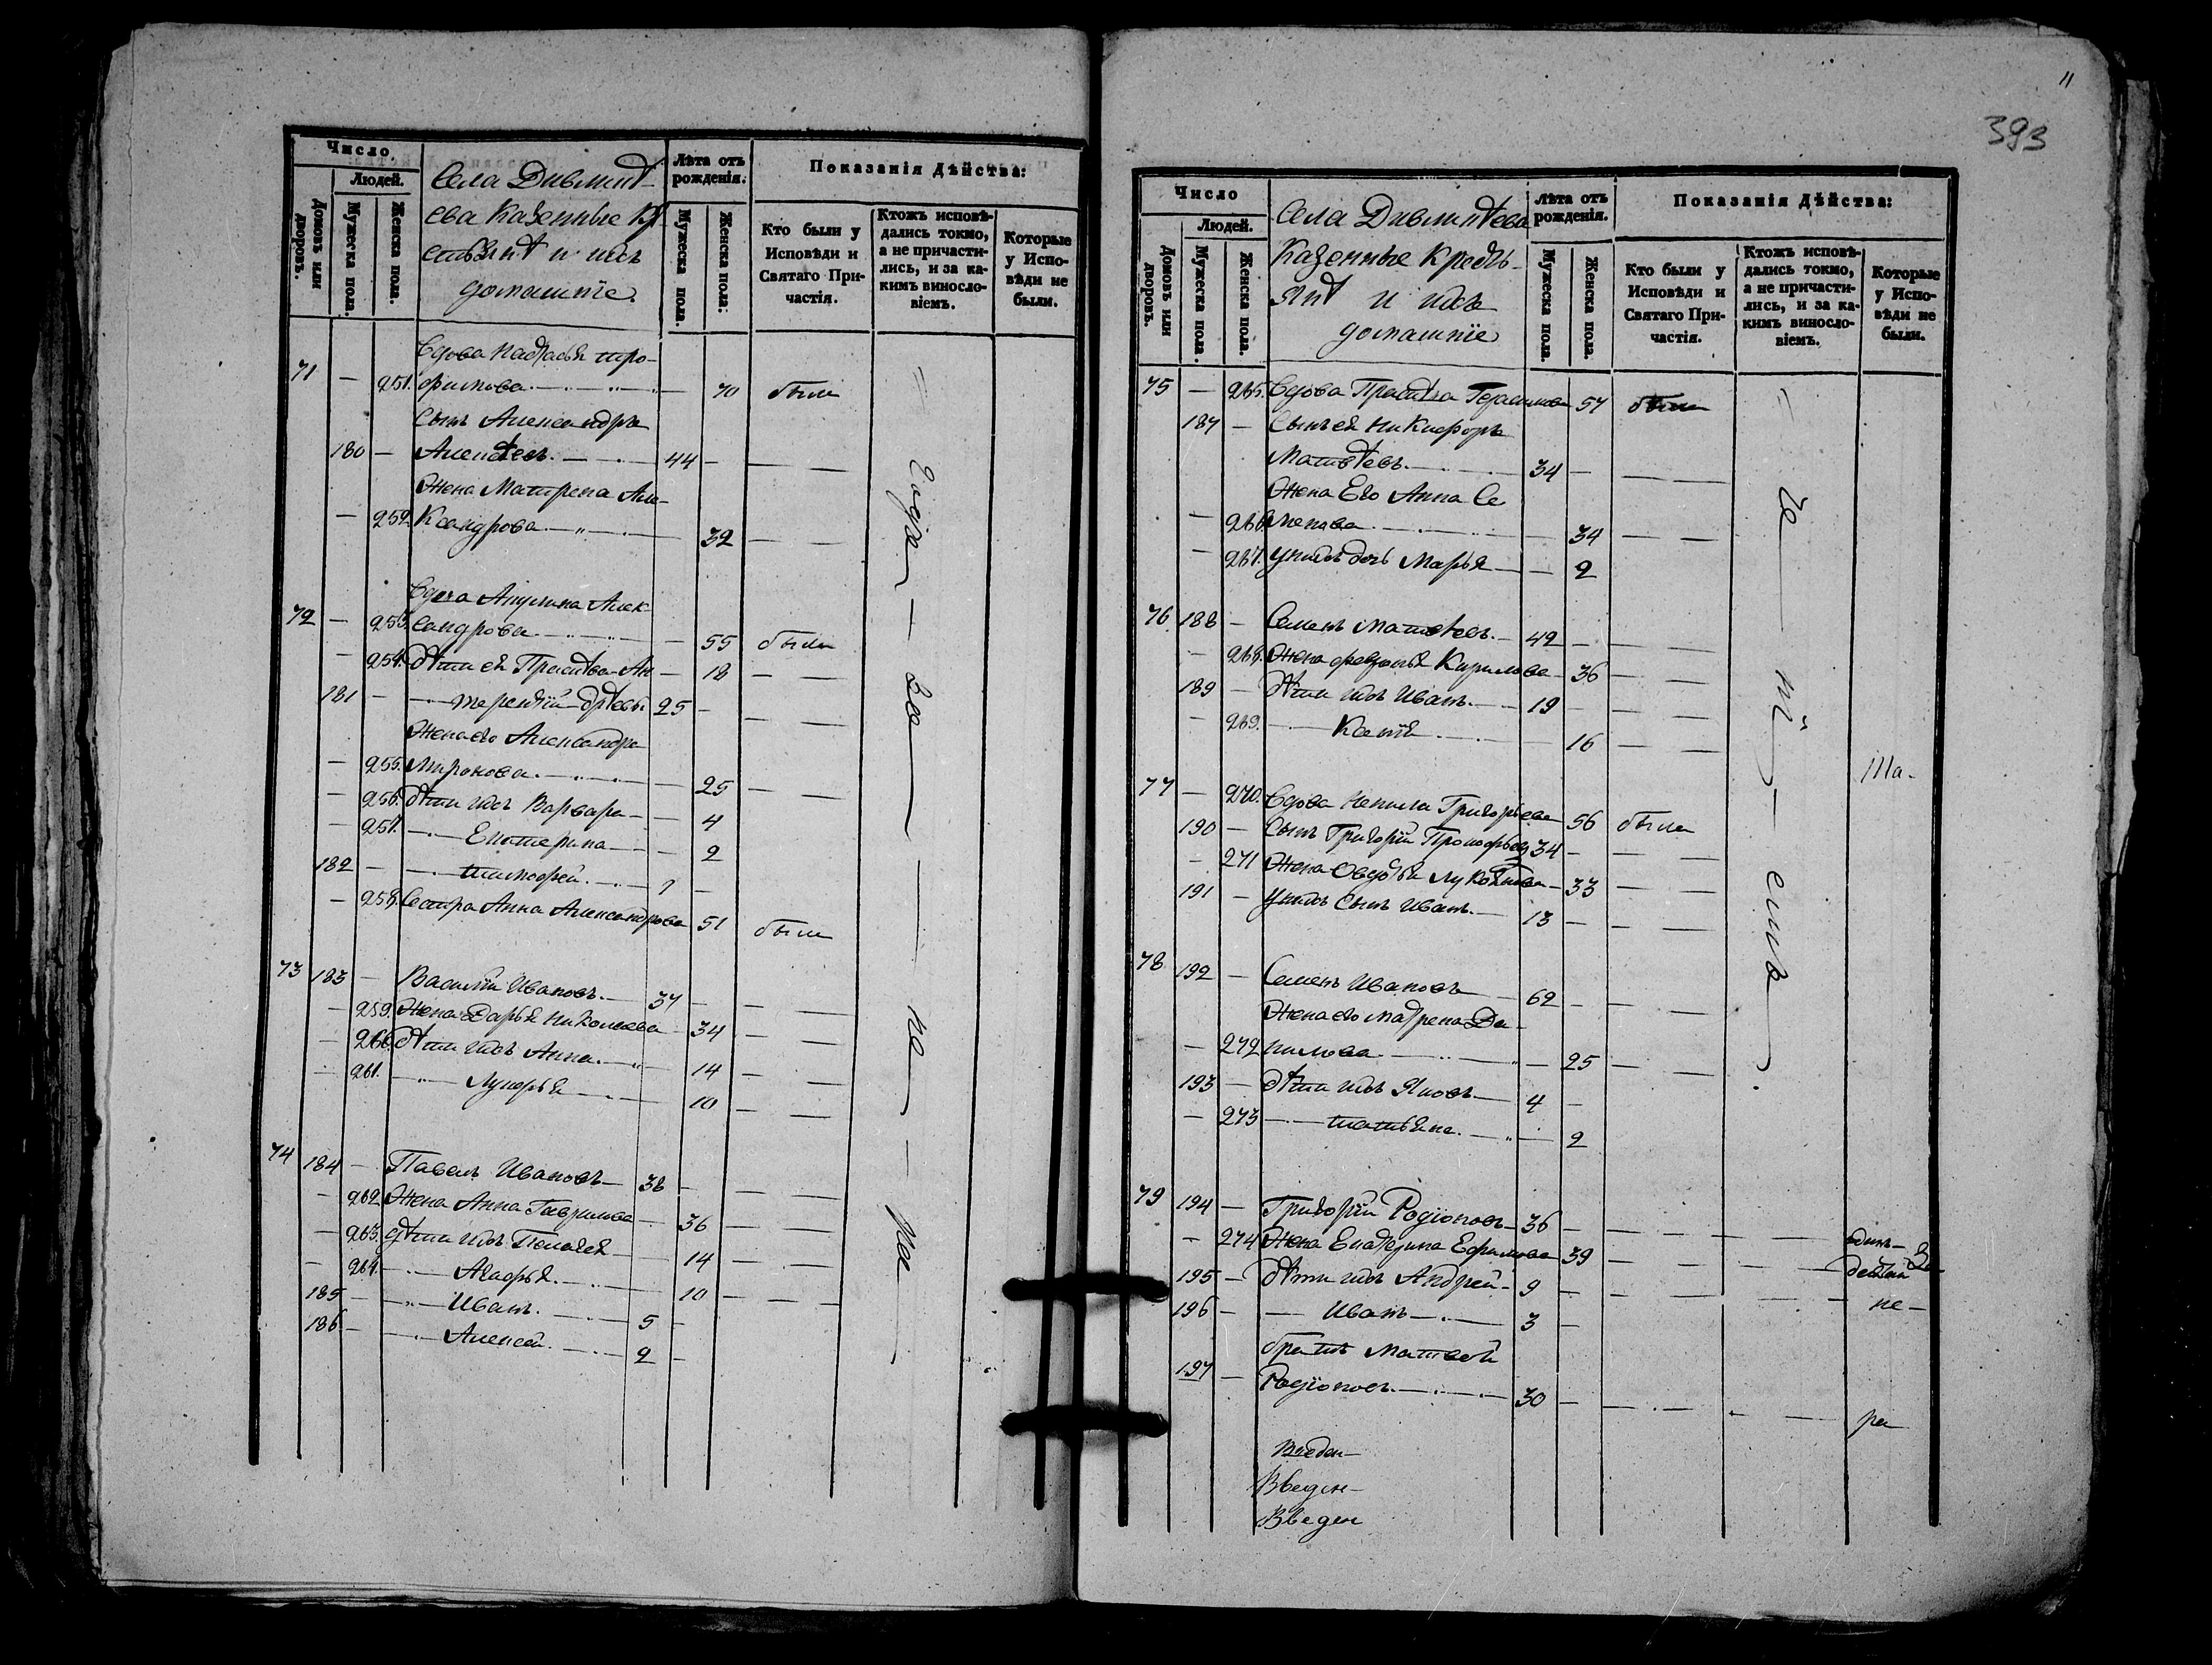 Число
Людей.
Домовъ или дворовъ.
Мужеска пола.
Женска пола.
Села
Казенные
и ихъ
домашніе
Лѣта отъ рожденія.
Мужеска пола.
Женска пола:
Показанія Дѣйства:
Кто были у Исповѣди и Святаго Причастія.
Ктожъ исповѣдались токмо, а не причастились, и за какимъ винословіемъ.
Которые у Исповѣди не были.
71 — 251. Вдова Настасья Трофимова — 70 были
Сынъ Александръ
180 — Алексѣевъ. — 44 —
Жена Матрена Але-
— 252. ксандрова — 32 — —
Вдова Акулина Алек-
72 — 253. сандрова — 55 были
— 254. Дѣти ея Прасковья Ан — 18 — —
181 — Терентій дрѣевы 25 — —
Жена его Александра
— 255. Миронова — 25 — —
— 256. Дѣти ихъ Варвара — 4
— 257. Екатерина — 2
182 — Тимофей — 1 —
— 258. Сестра Анна Александрова 51 были
73 183 — Василій Ивановъ — 37 — —
— 259. Жена Дарья Николаева — 34 — —
— 260. Дѣти ихъ Анна — 14 — —
— 261. Лукерья — 10 — —
74 184 — Павелъ Ивановъ — 38 — —
— 262. Жена Анна Гаврилова — 36 — —
— 263. Дѣти ихъ Пелагея — 14 — —
— 264. Агафья — 10 — —
185 — Иванъ — 5 —
186 — Алексей — 2 —
за — не — ра —
11
393
Число
Людей.
Домовъ или дворовъ.
Мужеска пола.
Женска пола.
Села
Казенные Кресть-
янѣ и ихъ
домашніе
Лѣта отъ рожденія.
Мужеска пола.
Женска пола.
Показанія Дѣйства:
Кто были у Исповѣди и Святаго Причастія.
Ктожъ исповѣдались токмо, а не причастились, и за какимъ винословіемъ.
Которые у Исповѣди не были.
75 — 265. Вдова Герасимова 57 были
187 — Сынъ ея Никифоръ
Матвѣевъ — 34 — —
Жена Его Анна Се
— 266. менова — 34 — —
— 267. У нихъ дочь Марья — 2
76 188 — Семенъ Матвѣевъ — 42 — —
— 268. Жена Кирилова — 36 — —
189 — Дѣти ихъ Иванъ — 19 — —
— 269. Ксенія — 16 — —
77 — 270. Вдова Ненила Григорьева 56 были
190 — Сынъ Григорій Прокофьевъ 34 — —
— 271 Жена Овдотья Лукоянова — 33 — —
191 — У нихъ Сынъ Иванъ — 13 — —
78 192 — Семенъ Ивановъ — 62 — —
Жена его Матрена Да-
— 272 нилова — 25 — —
193 — Дѣти ихъ Яковъ — 4 —
— 273 Татьяна — 2
79 194 — Григорій Родіоновъ — 36 — —
— 274 Жена Екатерина Ефимова — 39 — —
195 — Дѣти ихъ Андрей — 9 — —
196 — Иванъ — 3 —
братъ Матвей
197 — Родіоновъ — 30 — —
че — ні — емъ
не —
ра
Введен-
Введен-
Введен